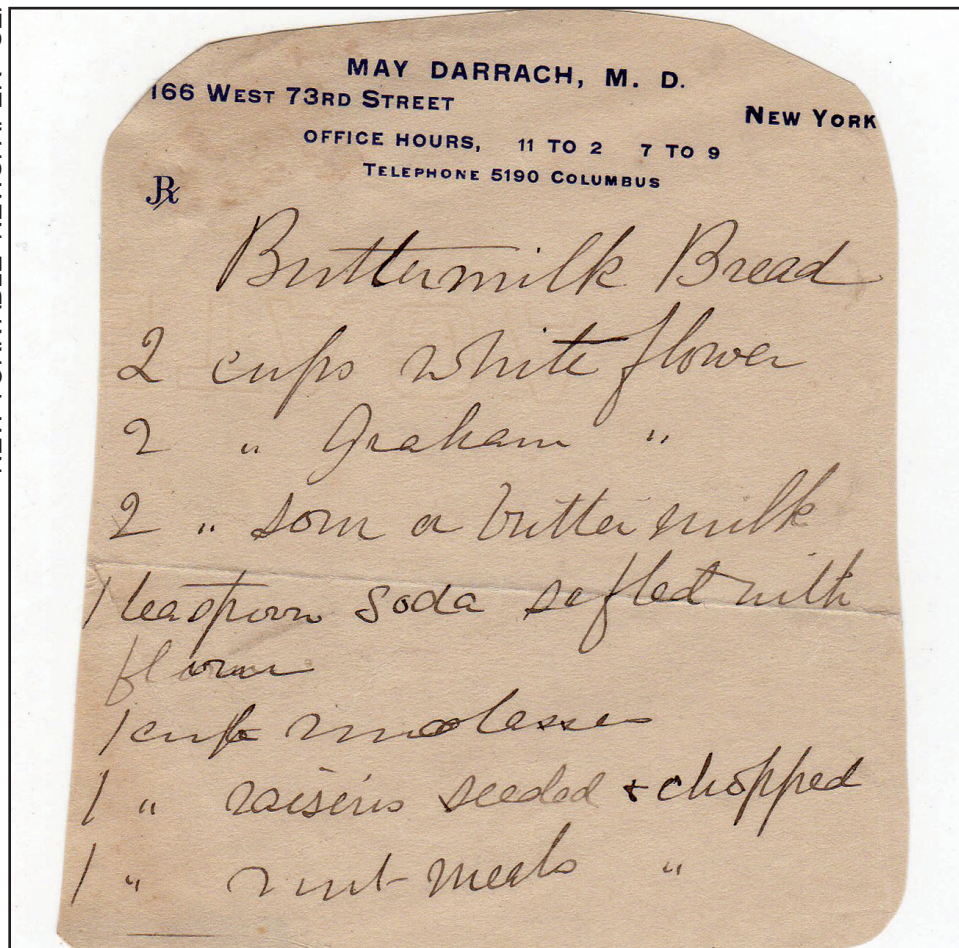 MAY DARRACH, M. D.
166 WEST 73RD STREET NEW YORK
OFFICE HOURS, 11 TO 2 7 TO 9
TELEPHONE 5190 COLUMBUS
℞
Buttermilk Bread
2 cups white flower
2 " Graham "
2 " sour or butter milk
1 teaspoon soda sifted with
flour
1 cup molasses
1 " raisins seeded + chopped
1 " nut-meats "